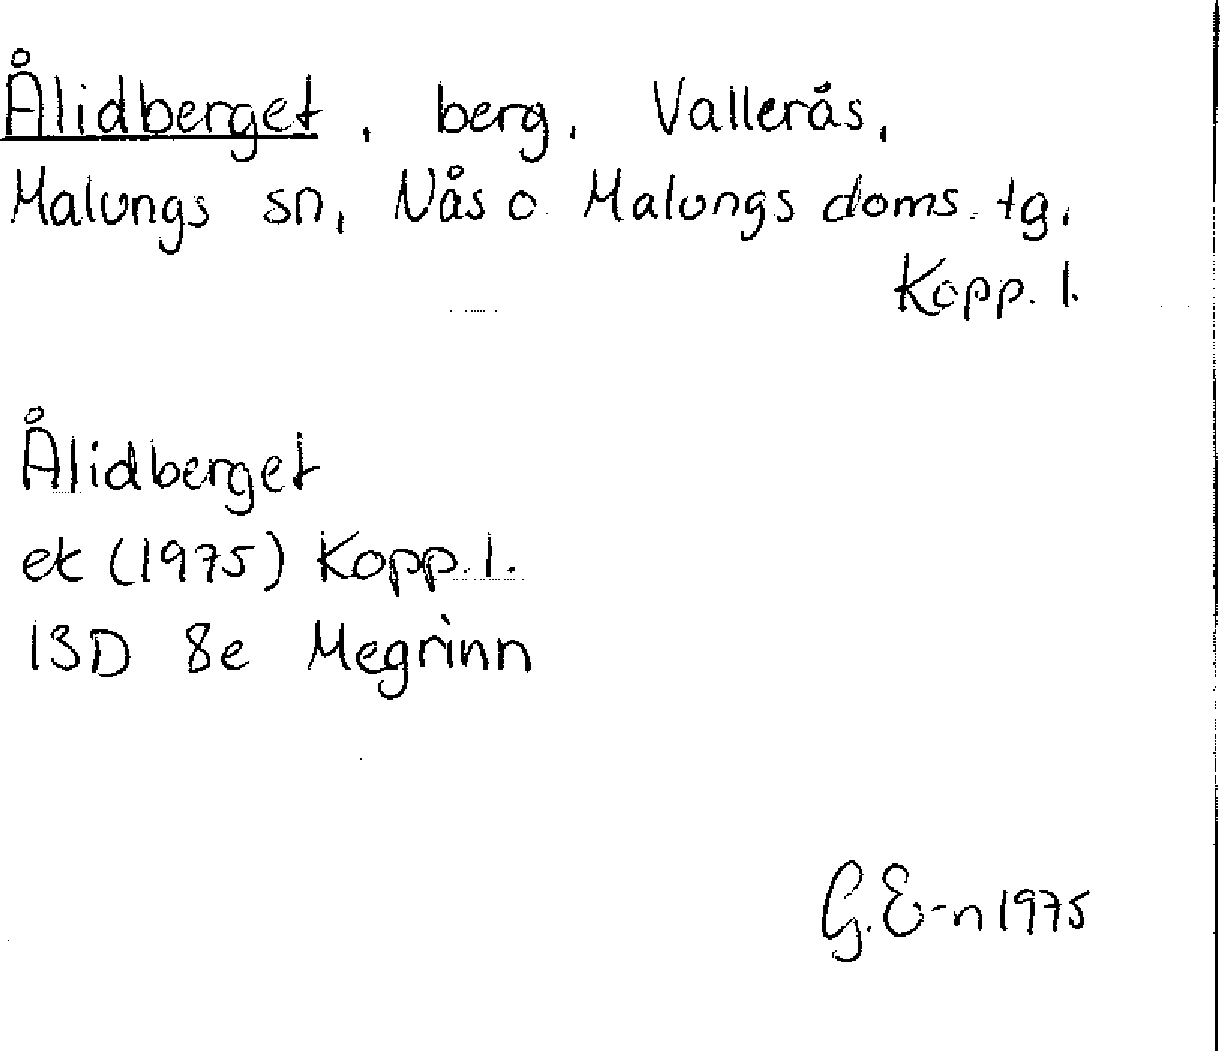 Ålidberget, berg, Vallerås,
Malungs sn, Nås o Malungs doms. tg.
Kopp. l.
Ålidberget
ek (1975) Kopp. l.
13D 8e Megrinn
G. E-n 1975